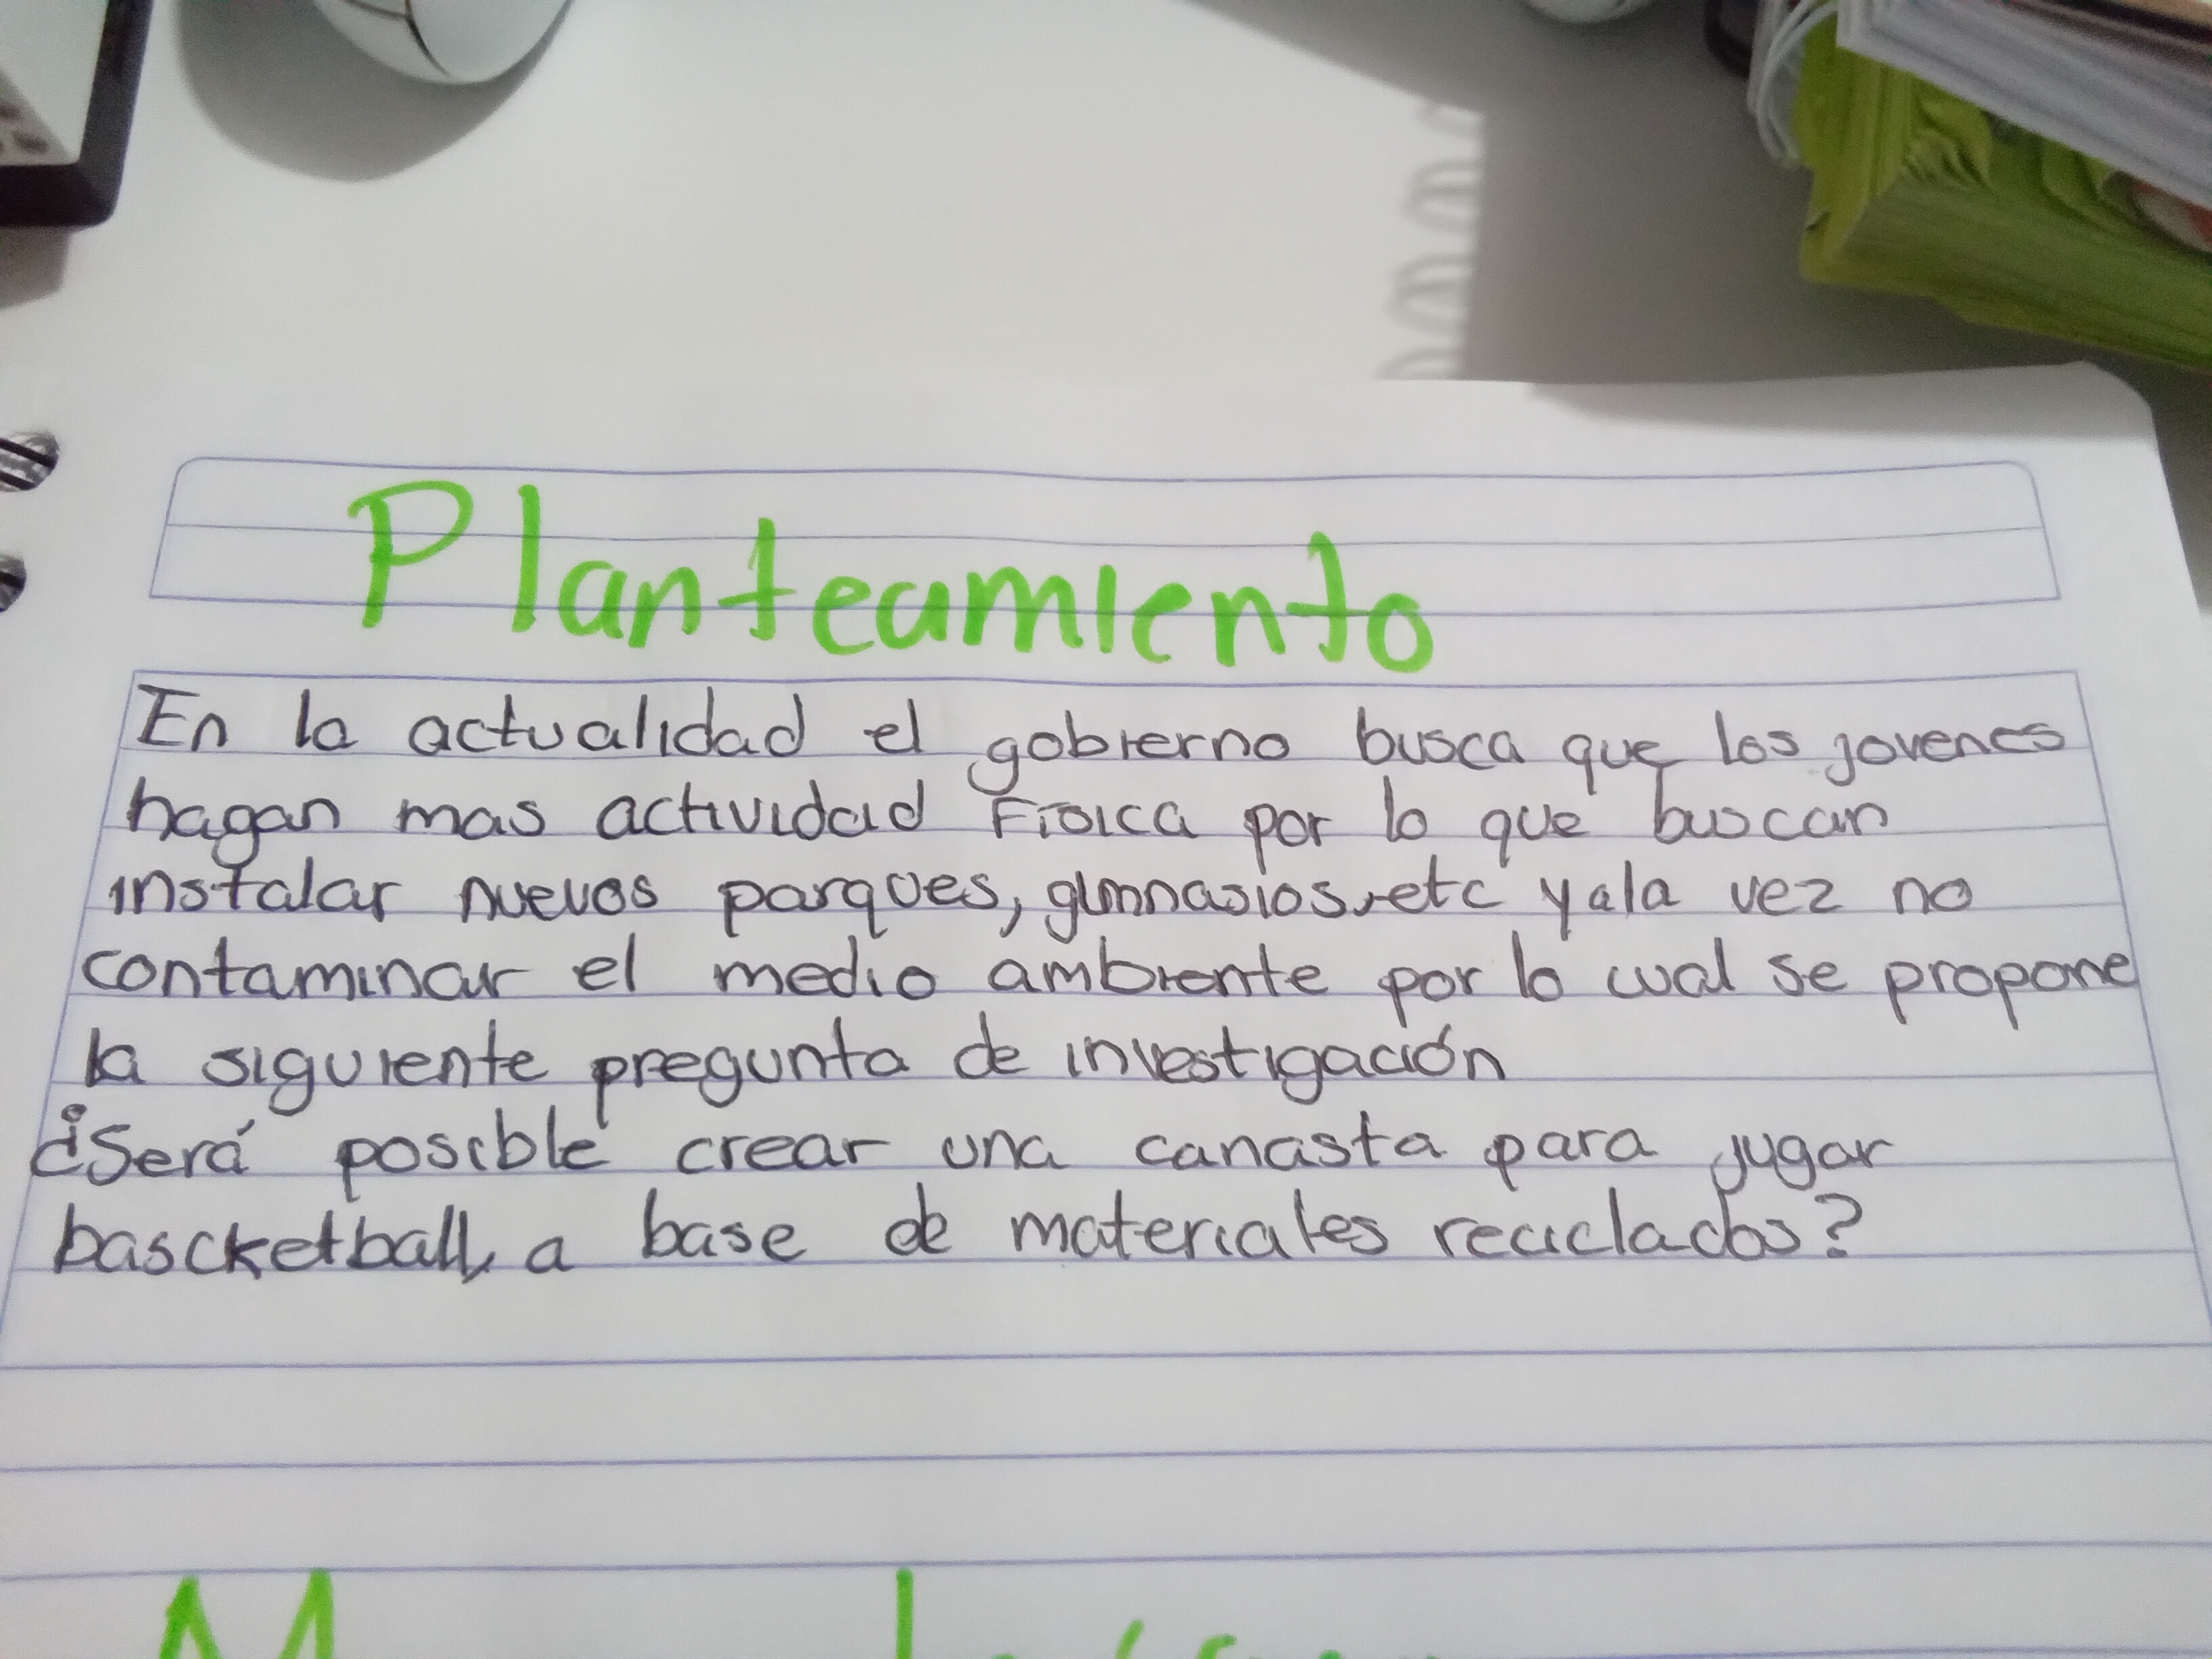 Planteamiento
En la actualidad el gobierno busca que los jovenes
hagan mas actividad Física por lo que buscan
instalar nuevos parques, gimnasios, etc y a la vez no
contaminar el medio ambiente por lo cual se propone
la siguiente pregunta de investigación
¿Será posible crear una canasta para jugar
bascketball a base de materiales reciclados?